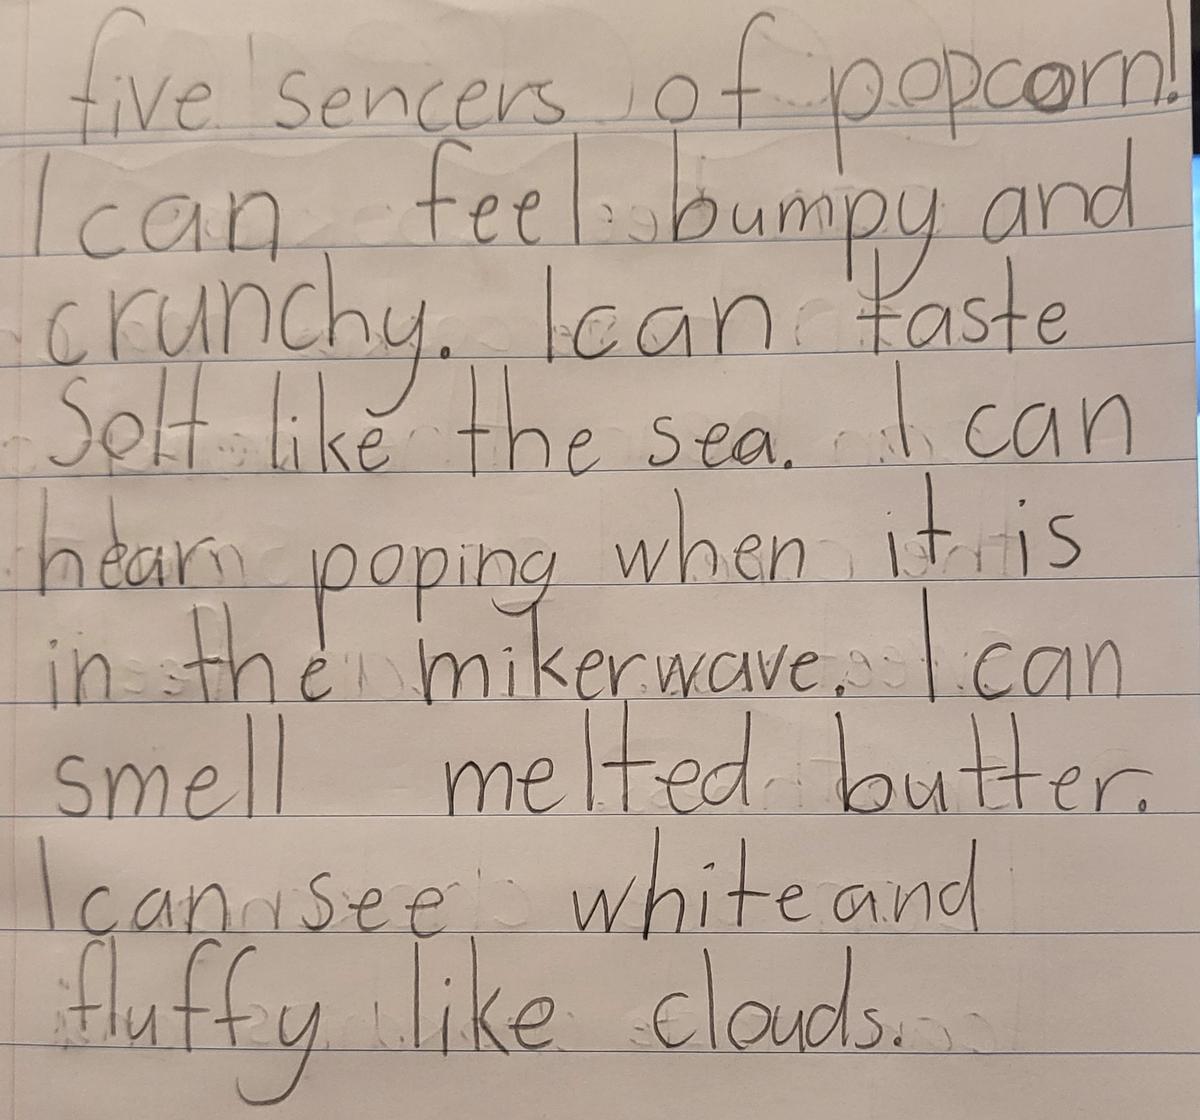 five sencers of popcorn!
I can feel bumpy and
crunchy. I can taste
Solt like the sea. I can
hear poping when it is
in the mikerwave. I can
smell melted butter.
I can see white and
fluffy like clouds.